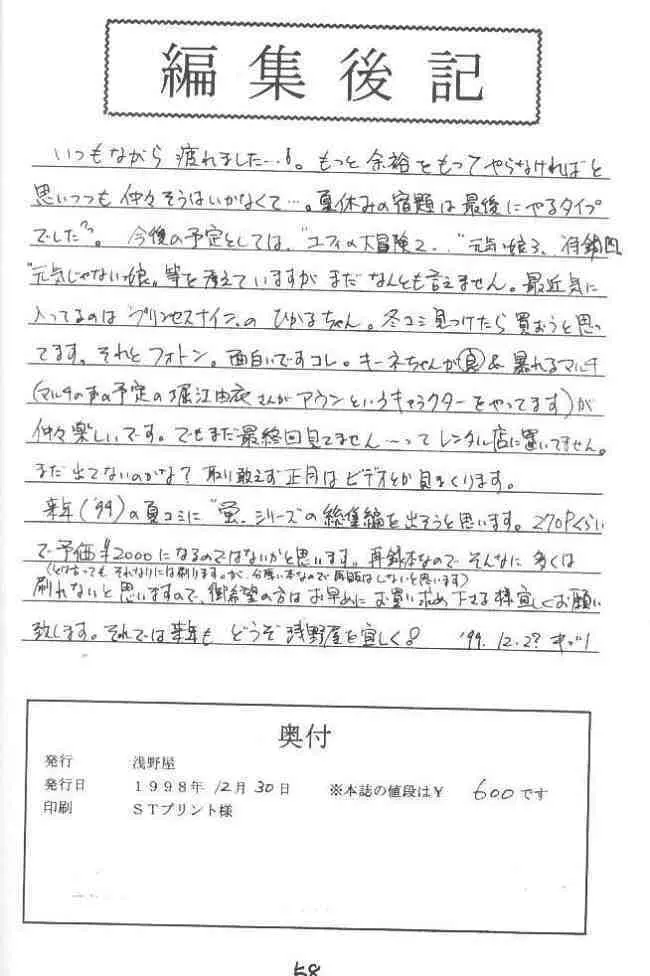 編集後記
いつもながら 疲れました…。もっと 余裕をもってやらなければと
思いつつも 仲々そうはいかなくて…。夏休みの宿題は最後にやるタイプ
でした。 今後の予定としては、"ユフィの大冒険2"、"元気な娘3、
"元気じゃない娘"、等を考えていますが まだ なんとも言えません。最近気に
入ってるのは"プリンセスナイン"の ひかるちゃん。冬コミ見つけたら買おうと思っ
てます。それと フォトン。面白いですコレ。キーネちゃんが(良)& 暴れるマルチ
(マルチの声の予定の堀江由衣さんが アウンというキャラクターをやってます)が
仲々楽しいです。でもまだ最終回見てません…って レンタル店に置いてません。
まだ出てないのかな? 取り敢えず正月は ビデオとか見まくります。
来年('99)の夏コミに"蛍"シリーズの総集編を出そうと思います。270Pくらい
で予価¥2000になるのではないかと思います。再録本なので そんなに 多くは
(とは言っても それなりには刷りますが、分厚い本なので再販はしないと思います)
刷れないと思いますので、御希望の方は お早めに お買い求め下さる様宜しくお願い
致します。それでは来年も どうぞ 浅野屋を宜しく。 '99. 12. 27
奥付
発行 浅野屋
発行日 1998年 12月 30日 ※本誌の値段は¥ 600です
印刷 STプリント様
58